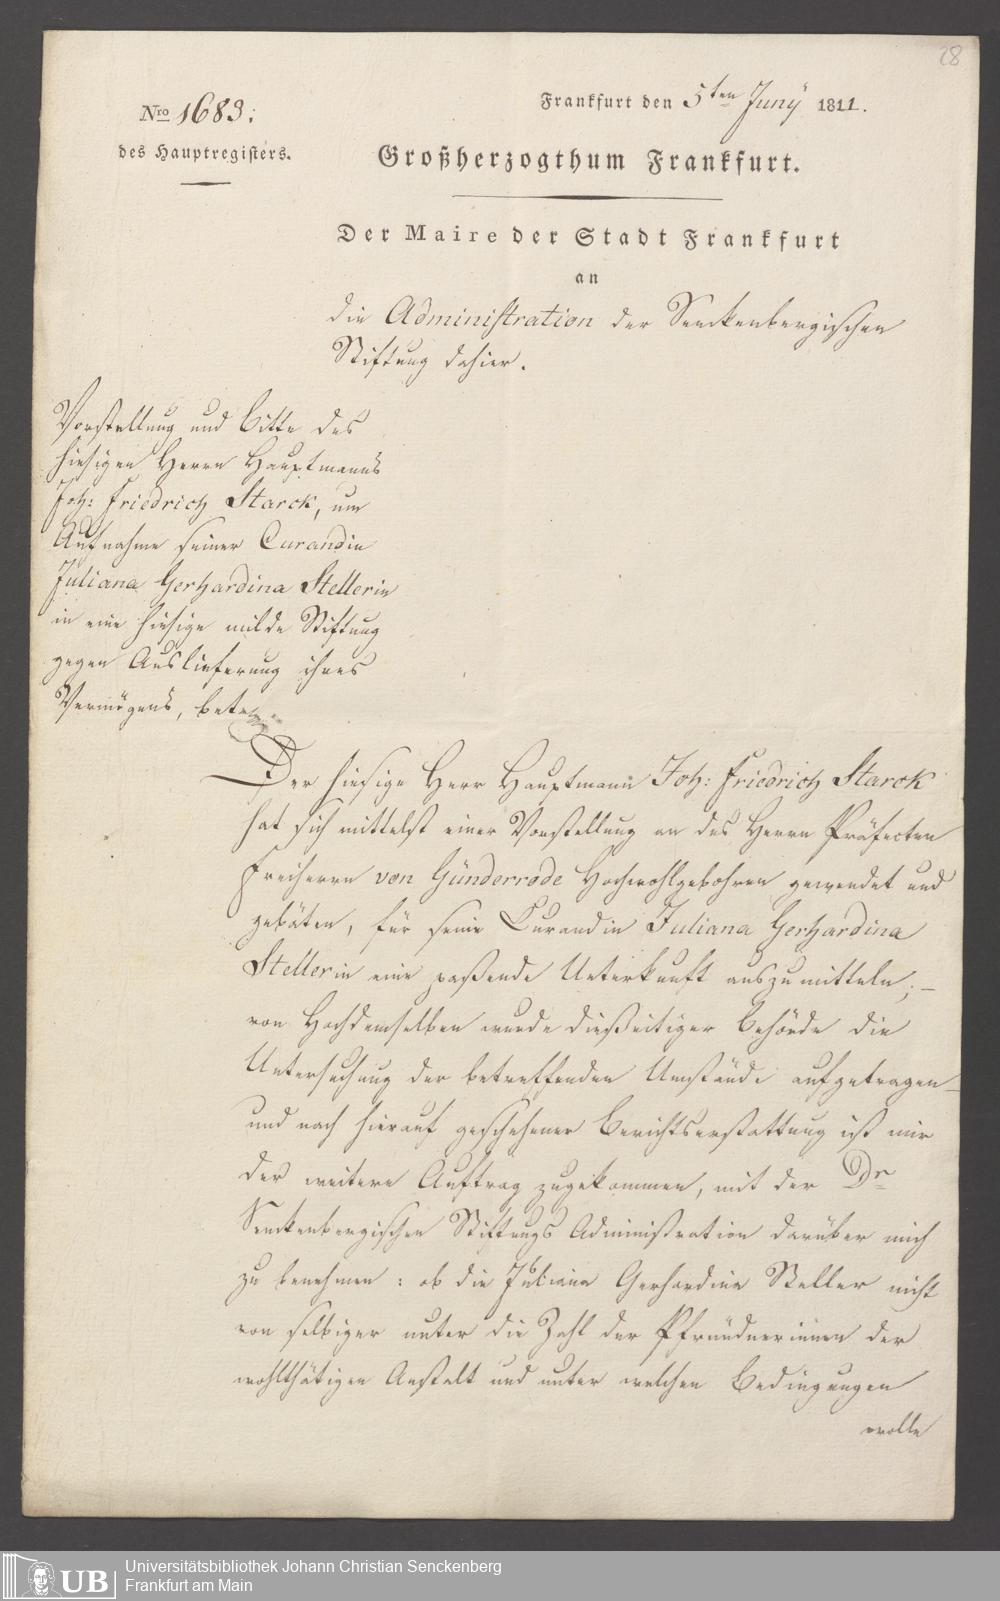 28
Nro 1683:
des Hauptregisters.
Frankfurt den 5ten Juny 1811.
Großherzogthum Frankfurt.
Der Maire der Stadt Frankfurt
an
die Administration der Senckenbergischen
Stiftung dahier.
Vorstellung und Bitte des
hiesigen Herrn Hauptmanns
Joh: Friedrich Starck, um
Aufnahme seiner Curandin
Juliana Gerhardina Stellerin
in eine hiesige milde Stiftung
gegen Auslieferung ihres
Vermögens, betr
Der hiesige Herr Hauptmann Joh: Friedrich Starck
hat sich mittelst einer Vorstellung an des Herrn Präfecten
Freiherrn von Günderrode Hochwohlgebohren gewendet und
gebäten, für seine Curandin Juliana Gerhardina
Stellerin eine paßende Unterkunft auszumitteln; –
von Hochdemselben wurde dießeitiger Behörde die
Untersuchung der betreffenden Umstände aufgetragen –
und nach hierauf geschehener Berichtserstattung ist mir
der weitere Auftrag zugekommen, mit der Dr
Senckenbergischen Stiftungs Administration darüber mich
zu benehmen: ob die Juliana Gerhardina Steller nicht
von selbiger unter die Zahl der Pfründnerinnen der
wohlthätigen Anstalt und unter welchen Bedingungen
wolle
UB
Universitätsbibliothek Johann Christian Senckenberg
Frankfurt am Main